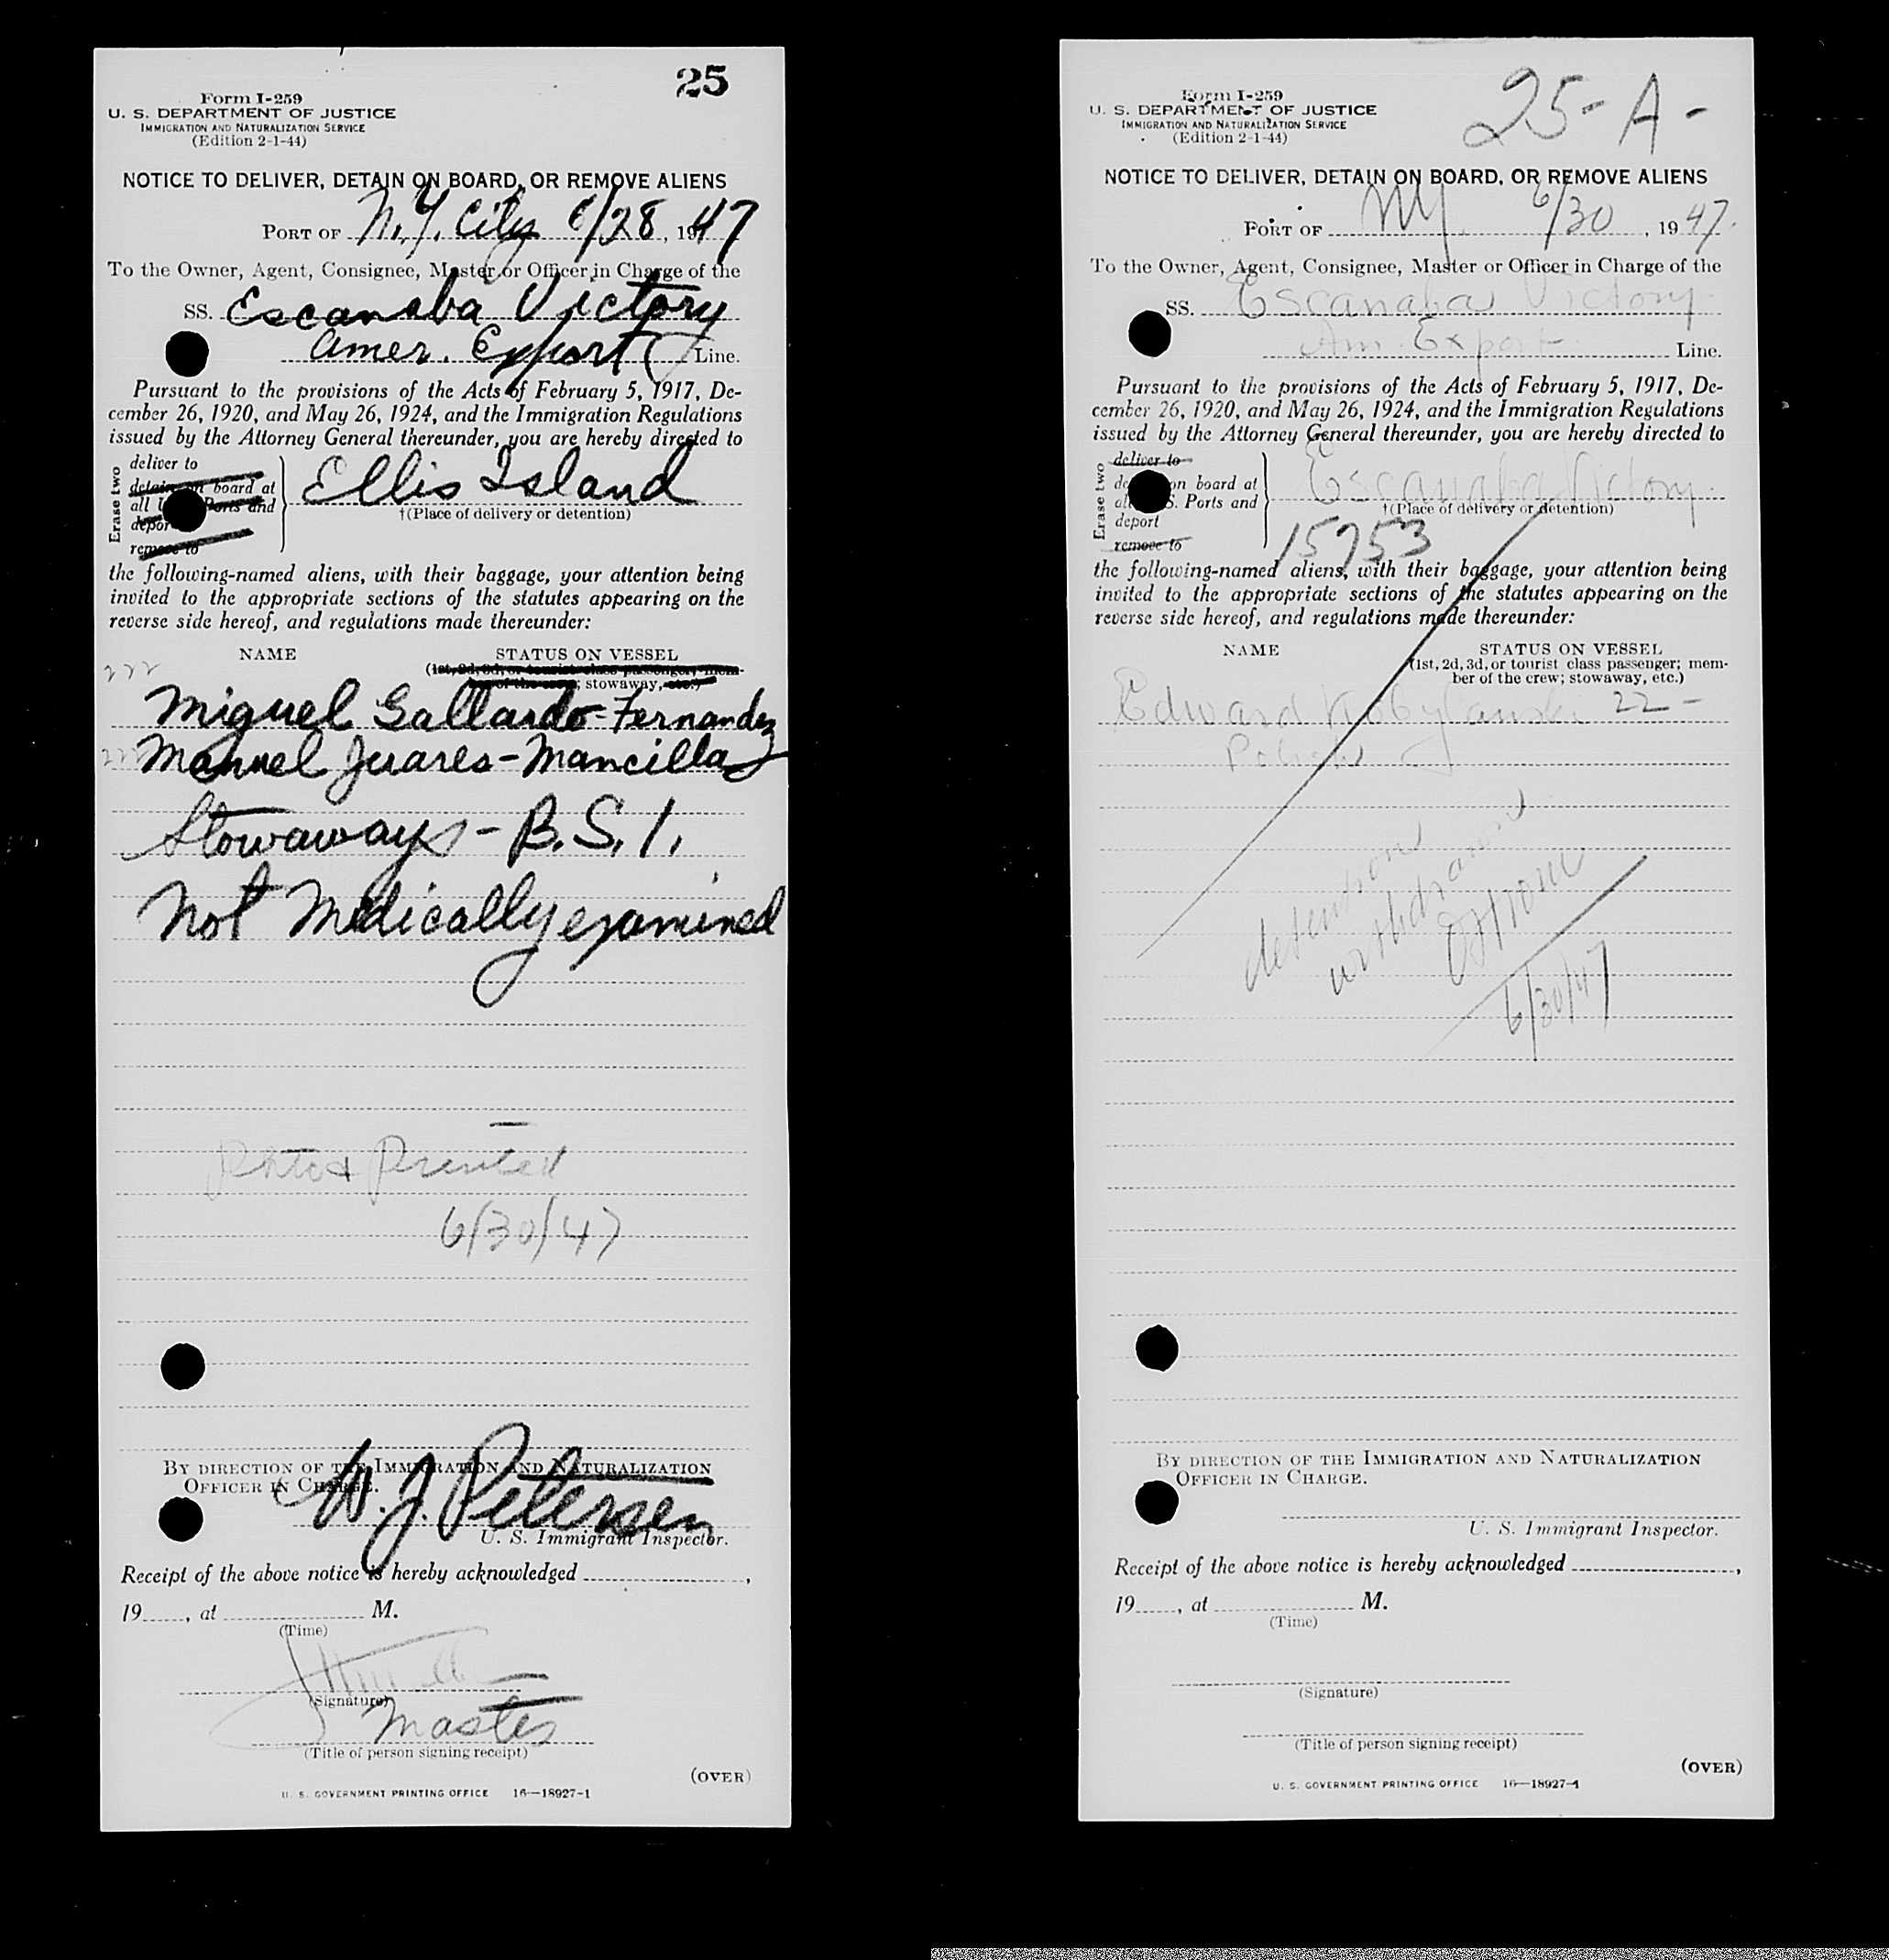 25
Form I-259
U. S. DEPARTMENT OF JUSTICE
IMMIGRATION AND NATURALIZATION SERVICE
(Edition 2-1-44)
NOTICE TO DELIVER, DETAIN ON BOARD, OR REMOVE ALIENS
PORT OF N.Y. City 6/28, 1947
To the Owner, Agent, Consignee, Master or Officer in Charge of the
SS. Escanaba Victory
Amer. Export Line.
Pursuant to the provisions of the Acts of February 5, 1917, De-
cember 26, 1920, and May 26, 1924, and the Immigration Regulations
issued by the Attorney General thereunder, you are hereby directed to
Erase two
deliver to
detain on board at
all U. S. Ports and
deport
remove to
Ellis Island
†(Place of delivery or detention)
the following-named aliens, with their baggage, your attention being
invited to the appropriate sections of the statutes appearing on the
reverse side hereof, and regulations made thereunder:
NAME STATUS ON VESSEL
(1st, 2d, 3d, or tourist class passenger; mem-
ber of the crew; stowaway, etc.)
Miguel Gallardo-Fernandez
Manuel Juares-Mancilla
Stowaways - B.S.I.
Not Medically examined
Photo & Printed
6/30/47
BY DIRECTION OF THE IMMIGRATION AND NATURALIZATION
OFFICER IN CHARGE.
W. J. Petersen
U. S. Immigrant Inspector.
Receipt of the above notice is hereby acknowledged ,
19 , at M.
(Time)
(Signature)
Master
(Title of person signing receipt)
(OVER)
U. S. GOVERNMENT PRINTING OFFICE 16—18927-1
25-A-
Form I-259
U. S. DEPARTMENT OF JUSTICE
IMMIGRATION AND NATURALIZATION SERVICE
(Edition 2-1-44)
NOTICE TO DELIVER, DETAIN ON BOARD, OR REMOVE ALIENS
PORT OF NY 6/30, 1947.
To the Owner, Agent, Consignee, Master or Officer in Charge of the
SS. Escanaba Victory
Am. Export Line.
Pursuant to the provisions of the Acts of February 5, 1917, De-
cember 26, 1920, and May 26, 1924, and the Immigration Regulations
issued by the Attorney General thereunder, you are hereby directed to
Erase two
deliver to
detain on board at
all U. S. Ports and
deport
remove to
Escanaba Victory.
†(Place of delivery or detention)
15753
the following-named aliens, with their baggage, your attention being
invited to the appropriate sections of the statutes appearing on the
reverse side hereof, and regulations made thereunder:
NAME STATUS ON VESSEL
(1st, 2d, 3d, or tourist class passenger; mem-
ber of the crew; stowaway, etc.)
Edward 22-
Polish
detention
withdrawn
6/30/47
BY DIRECTION OF THE IMMIGRATION AND NATURALIZATION
OFFICER IN CHARGE.
U. S. Immigrant Inspector.
Receipt of the above notice is hereby acknowledged ,
19 , at M.
(Time)
(Signature)
(Title of person signing receipt)
(OVER)
U. S. GOVERNMENT PRINTING OFFICE 16—18927-1